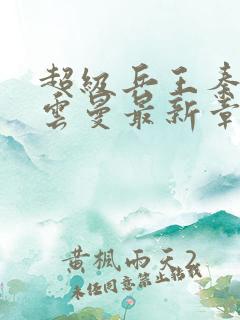 超級兵王秦
雲曼最新章
黃楓雨天2
未经同意禁止转载